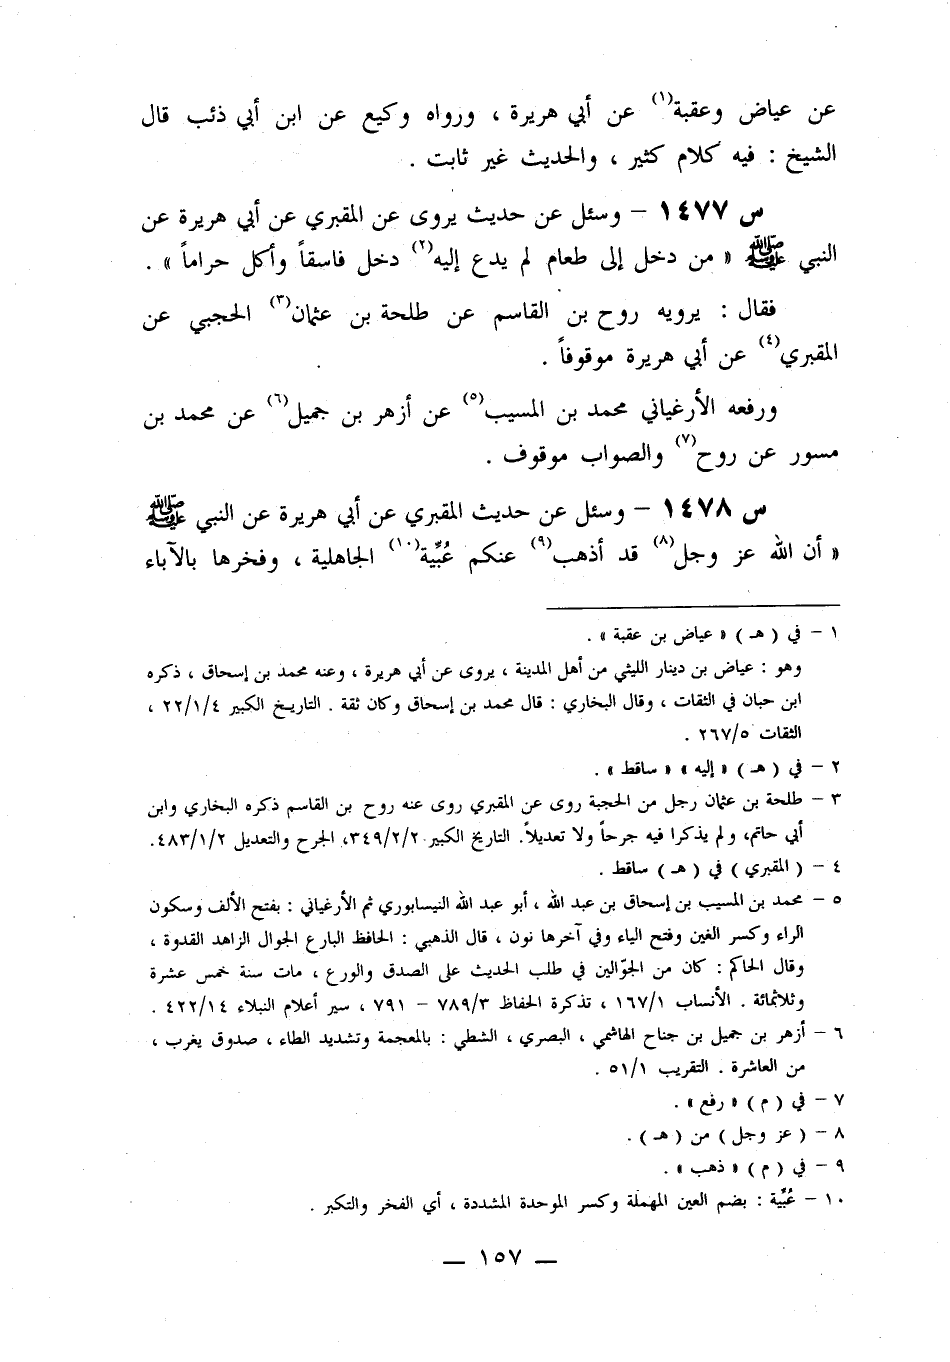 عن عياض وعقبة(١) عن أبي هريرة ، ورواه وكيع عن ابن أبي ذئب قال
الشيخ : فيه كلام كثير ، والحديث غير ثابت .
س ١٤٧٧ – وسئل عن حديث يروى عن المقبري عن أبي هريرة عن
النبي ﷺ « من دخل إلى طعام لم يدع إليه(٢) دخل فاسقاً وأكل حراماً » .
فقال : يرويه روح بن القاسم عن طلحة بن عثمان(٣) الحجبي عن
المقبري(٤) عن أبي هريرة موقوفاً .
ورفعه الأرغياني محمد بن المسيب(٥) عن أزهر بن جميل(٦) عن محمد بن
مسور عن روح(٧) والصواب موقوف .
س ١٤٧٨ – وسئل عن حديث المقبري عن أبي هريرة عن النبي ﷺ
« أن الله عز وجل(٨) قد أذهب(٩) عنكم عُبِّية(١٠) الجاهلية ، وفخرها بالآباء
١ – في ( هـ ) « عياض بن عقبة » .
وهو : عياض بن دينار الليثي من أهل المدينة ، يروى عن أبي هريرة ، وعنه محمد بن إسحاق ، ذكره
ابن حبان في الثقات ، وقال البخاري : قال محمد بن إسحاق وكان ثقة . التاريخ الكبير ٢٢/١/٤ ،
الثقات ٢٦٧/٥ .
٢ – في ( هـ ) « إليه » « ساقط » .
٣ – طلحة بن عثمان رجل من الحجبة روى عن المقبري روى عنه روح بن القاسم ذكره البخاري وابن
أبي حاتم، ولم يذكرا فيه جرحاً ولا تعديلاً. التاريخ الكبير ٣٤٩/٢/٢، الجرح والتعديل ٤٨٣/١/٢.
٤ – ( المقبري ) في ( هـ ) ساقط .
٥ – محمد بن المسيب بن إسحاق بن عبد الله ، أبو عبد الله النيسابوري ثم الأرغياني : بفتح الألف وسكون
الراء وكسر الغين وفتح الياء وفي آخرها نون ، قال الذهبي : الحافظ البارع الجوال الزاهد القدوة ،
وقال الحاكم : كان من الجوّالين في طلب الحديث على الصدق والورع ، مات سنة خمس عشرة
وثلاثمائة . الأنساب ١٦٧/١ ، تذكرة الحفاظ ٧٨٩/٣ – ٧٩١ ، سير أعلام النبلاء ٤٢٢/١٤ .
٦ – أزهر بن جميل بن جناح الهاشمي ، البصري ، الشطي : بالمعجمة وتشديد الطاء ، صدوق يغرب ،
من العاشرة . التقريب ٥١/١ .
٧ – في ( م ) « رفع » .
٨ – ( عز وجل ) من ( هـ ) .
٩ – في ( م ) « ذهب » .
١٠ – عُبِّية : بضم العين المهملة وكسر الموحدة المشددة ، أي الفخر والتكبر .
— ١٥٧ —